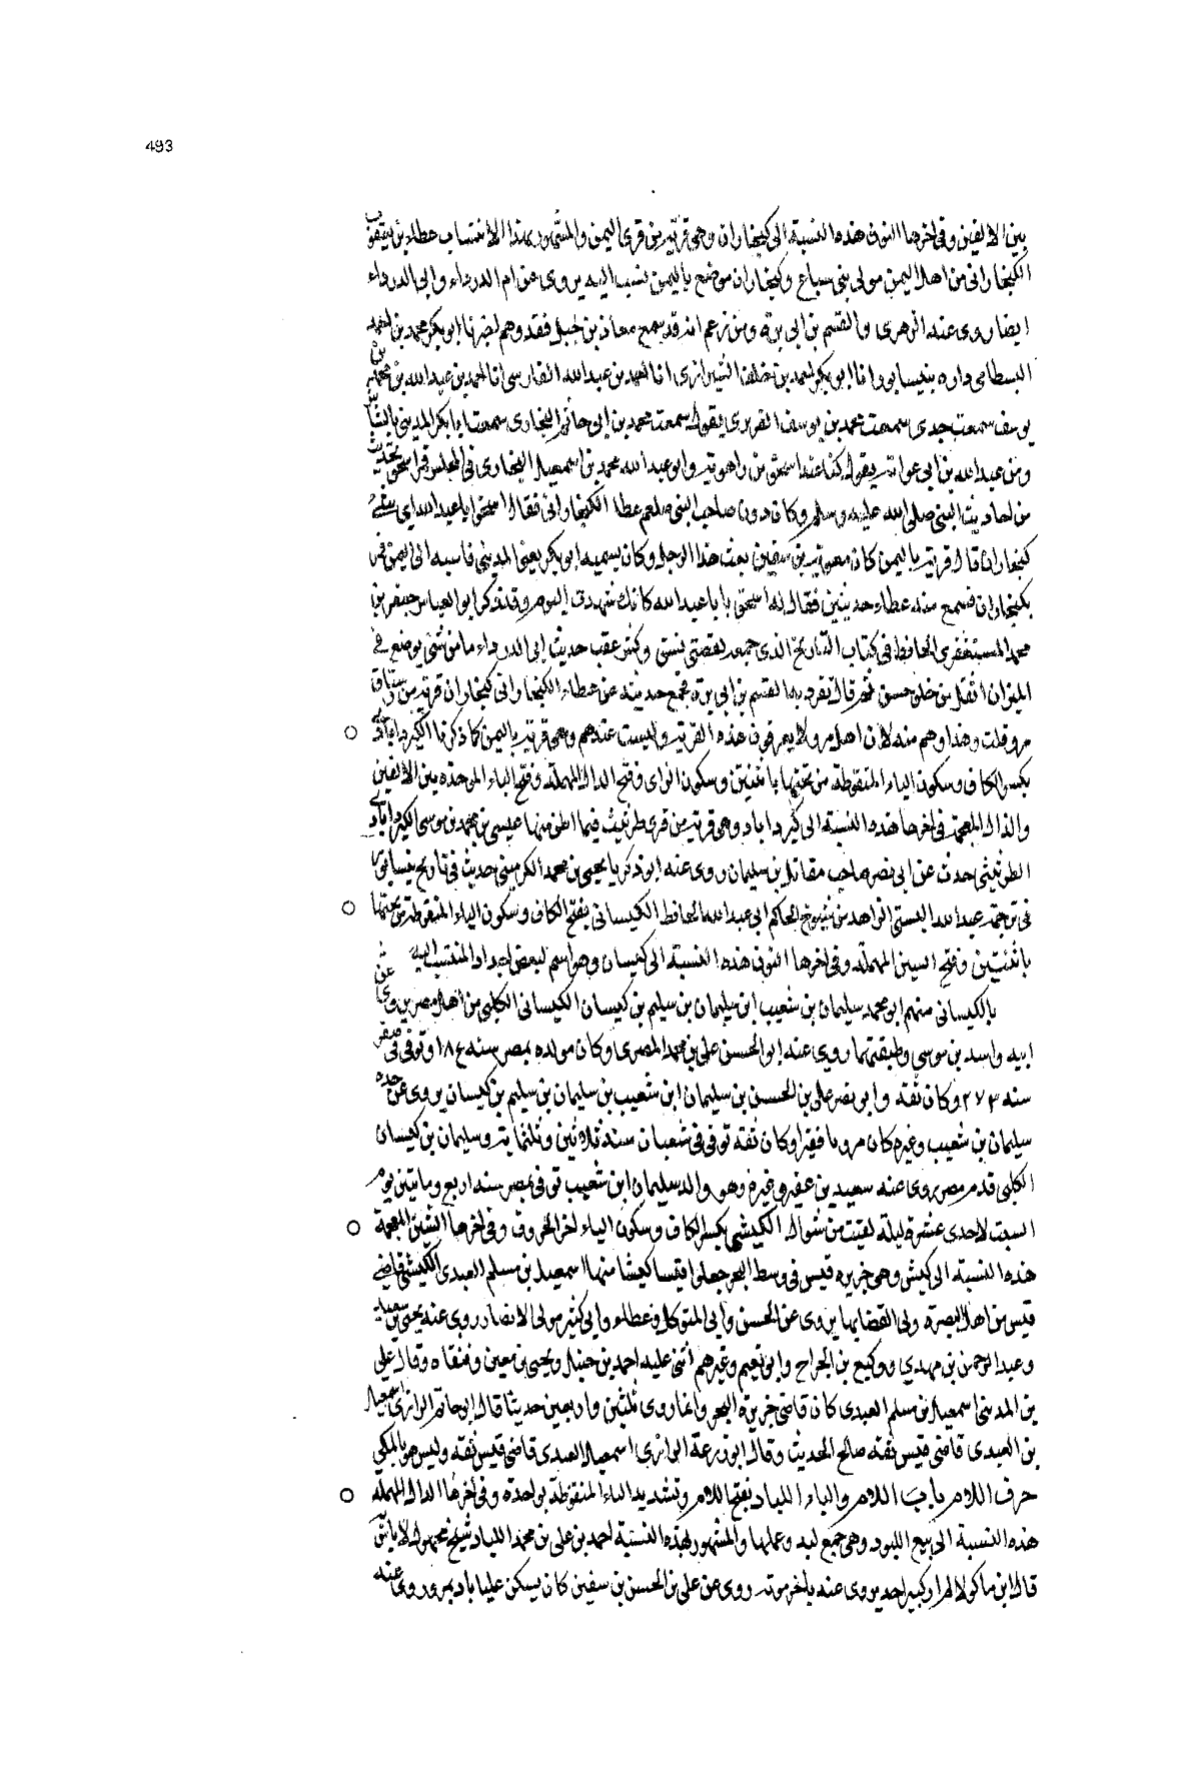 493
بين الالفين وفى اخرها النون هذه النسبة الى كيخاران وهى قرية من قرى اليمن والمشهور بهذا الانتساب عطاء بن يعقوب
الكيخارانى من اهل اليمن مولى بنى سباع وكيخاران موضع باليمن نسب اليه يروى عن ام الدرداء وابى الدرداء
ايضا روى عنه الزهرى والقسم بن ابى بزة ومن زعم انه قد سمع معاذ بن جبل فقد وهم اخبرنا ابو بكر محمد بن احمد
البسطامى داره بنيسابور انا ابو بكر احمد بن خلف الشيرازى انا احمد بن عبد الله الفارسى انا احمد بن عبد الله بن محمد بن
يوسف سمعت جدى سمعت محمد بن يوسف الفربرى يقول سمعت محمد بن ابى حاتم البخارى سمعت ابا بكر المدينى بالشاش
ومن عبد الله بن ابى عوانة يقول كنا عند اسحق بن راهويه وابو عبد الله محمد بن اسمعيل البخارى فى المجلس فمر اسحق بحديث
من احاديث النبى صلى الله عليه وسلم وكان دون صاحب النبى صلعم عطا الكيخارانى فقال اسحق يا با عبد الله اى شئ
كيخاران قال قرية باليمن كان معوية بن سفين بعث هذا الرجل وكان يسميه ابو بكر يعنى المدينى فاسبه الى اليمن فمر
بكيخاران فسمع منه عطاء حديثين فقال له اسحق يا با عبد الله كانك شهدت اليوم وقد ذكر ابو العباس جعفر بن
محمد المستغفرى الحافظ فى كتاب التاريخ الذى جمعه لقصتى نسف وكش عقب حديث ابى الدرداء ما من شئ يوضع فى
الميزان اثقل من خلق حسن ثم قال تفرد بها القسم بن ابى بزة بجمع حديثه عن عطاء الكيخارانى كيخاران قرية من رستاق
مرو قلت وهذا وهم منه لان اهل مرو لا يعرفون هذه القرية وليست عندهم وهى قرية باليمن كما ذكرنا الكيرداباذى
بكسر الكاف وسكون الياء المنقوطة من تحتها باثنتين وسكون الراى وفتح الدال المهملة وفتح الباء الموحدة بين الالفين
والذال المعجمة فى اخرها هذه النسبة الى كيرداباد وهى قرية من قرى طريثيث فيما اظن منها عيسى بن محمد بن موسى الكيرداباذى
الطريثيثى حدث عن ابى نصر صاحب مقاتل بن سليمان روى عنه ابو زكريا يحيى بن محمد الكرمينى حديث فى تاريخ نيسابور
فى ترجمة عبد الله البستى الزاهد من شيوخ الحاكم ابى عبد الله الحافظ الكيسانى بفتح الكاف وسكون الياء المنقوطة من تحتها
باثنتين وفتح السين المهملة وفى اخرها النون هذه النسبة الى كيسان وهو اسم لبعض اجداد المنتسب اليه
بالكيسانى منهم ابو محمد سليمان بن شعيب ابن سليمان بن سليم بن كيسان الكيسانى الكلبى من اهل مصر يروى عن
ابيه واسد بن موسى وطبقتهما روى عنه ابو الحسن على بن محمد المصرى وكان مولده بمصر سنه ١٨٤ وتوفى فى صفر
سنه ٢٧٣ وكان ثقه وابو نصر على بن الحسن بن سليمان ابن شعيب بن سليمان بن سليم بن كيسان يروى عن جده
سليمان بن شعيب وغيره كان مرويا فقيرا وكان ثقه توفى فى شعبان سنة ثلاثين وثلثماية وسليمان بن كيسان
الكلبى قدم مصر روى عنه سعيد بن عفير وغيره وهو والد سليمان ابن شعيب توفى بمصر سنه اربع ومايتين يوم
السبت لاحدى عشرة ليلة بقيت من شوال الكيشى بكسر الكاف وسكون الياء اخر الحروف وفى اخرها الشين المعجمة
هذه النسبة الى كيش وهى جزيره قيس فى وسط البحر جعلوا قيسا كيشا منها اسمعيل بن مسلم العبدى الكيشى قاضى
قيس من اهل البصرة ولى القضا بها يروى عن الحسن وابى المتوكل وعطاء وابى كثير مولى الانصار روى عنه يحيى بن سعيد
وعبد الرحمن بن مهدى ووكيع بن الجراح وابو نعيم وغيرهم اثنى عليه احمد بن حنبل ويحيى بن معين وثقاه وقال على
بن المدينى اسمعيل بن مسلم العبدى كان قاضى جزيرة البحر وانما روى ثلثين او اربعين حديثا قال ابو حاتم الرازى اسمعيل
بن العبدى قاضى قيس ثقه صالح الحديث وقال ابو زرعة الرازى اسمعيل العبدى قاضى قيس ثقه وليس هو بالمكى
حرف اللام باب اللام والباء اللباد بفتح اللام وتشديد الباء المنقوطة بواحدة وفى اخرها الدال المهملة
هذه النسبة الى بيع اللبود وهى جمع لبد وعملها والمشهور بهذه النسبة احمد بن على بن محمد اللباد شيخ مجهول لا باس
قال ابن ماكولا لم ار كبير احد يروى عنه باخر موته روى عن على بن الحسن بن سفين كان يسكن عليا باد بمرو روى عنه